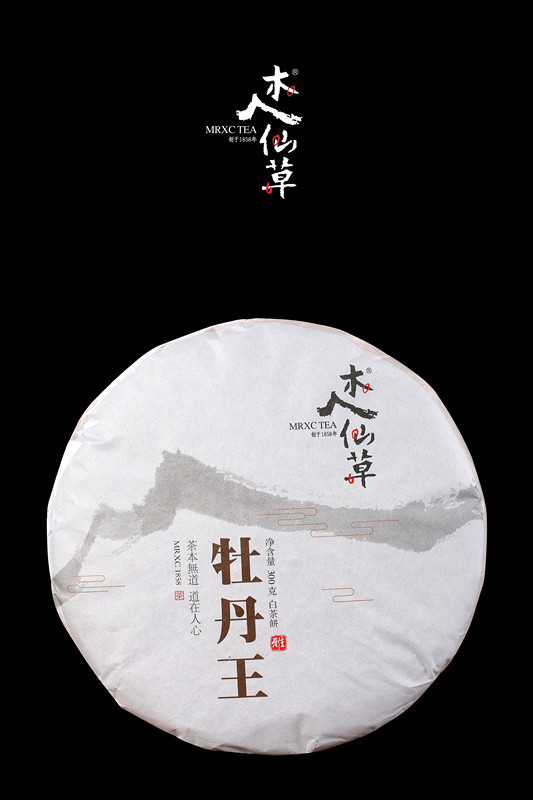 木人仙草®
MRXC TEA
创于1858年
木人仙草®
MRXC TEA
创于1858年
净含量 300 克 白茶餅
雅
牡丹王
茶本無道 道在人心
MRXC 1858